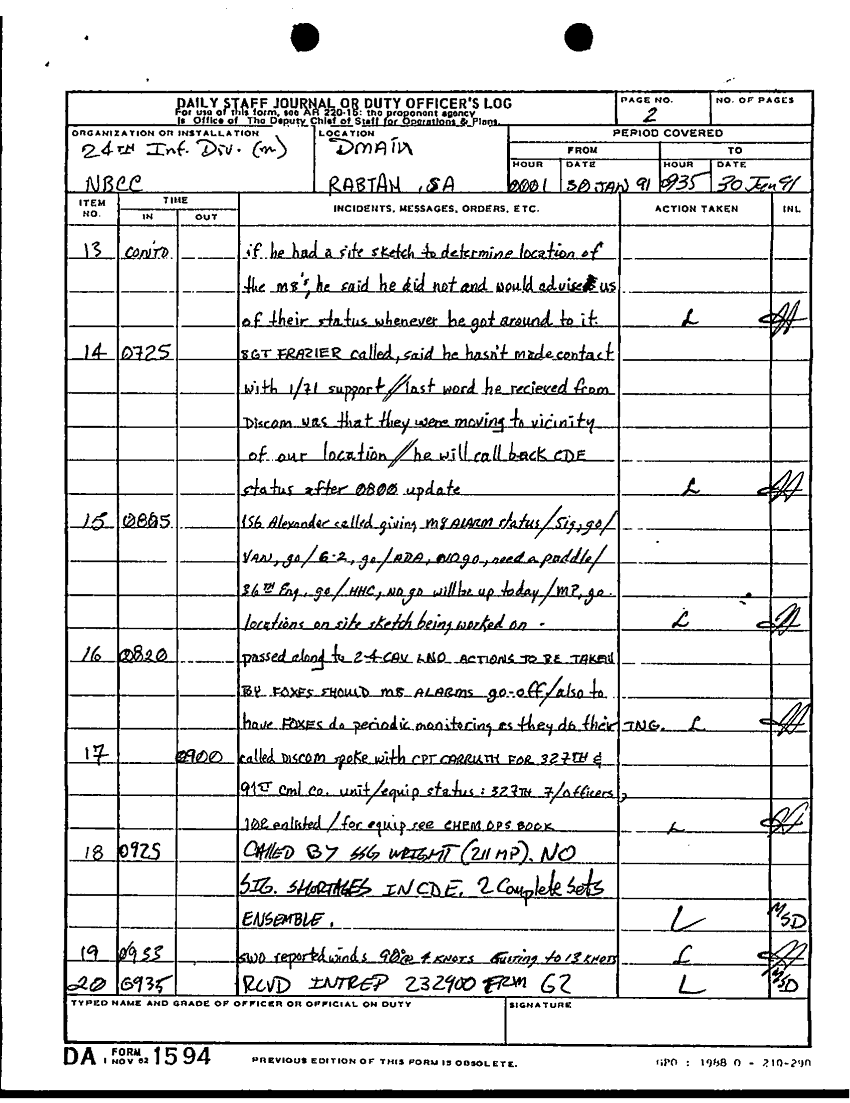 DAILY STAFF JOURNAL OR DUTY OFFICER'S LOG
For use of this form, see AR 220-15; the proponent agency
is Office of The Deputy Chief of Staff for Operations & Plans.
PAGE NO.
2
NO. OF PAGES
ORGANIZATION OR INSTALLATION
24TH Inf. Div. (m)
NBCC
LOCATION
DMAIN
RABTAH, SA
PERIOD COVERED
FROM
TO
HOUR DATE HOUR DATE
0001 30 JAN 91 0935 30 Jan 91
ITEM NO.
TIME
IN OUT
INCIDENTS, MESSAGES, ORDERS, ETC.
ACTION TAKEN
INL
13 CONT'D if he had a site sketch to determine location of
the M8's, he said he did not and would advise us
of their status whenever he got around to it. L
14 0725 SGT FRAZIER called, said he hasn't made contact
with 1/71 support // last word he recieved from
Discom was that they were moving to vicinity
of our location // he will call back CDE
status after 0800 update L
15 0805 1SG Alexander called giving M8 ALARM status / Sig, go /
VAN, go / G-2, go / ADA, NO go, need a paddle /
36TH Eng, go / HHC, NO go will be up today / MP, go.
locations on site sketch being worked on - L
16 0820 passed along to 2-4 CAV LNO ACTIONS TO BE TAKEN
BY FOXES SHOULD M8 ALARMS go-off / also to
have FOXES do periodic monitoring as they do their TNG. L
17 0900 called DISCOM spoke with CPT CARRUTH FOR 327TH &
91ST Cml co. unit/equip status: 327TH 7/officers,
102 enlisted / for equip see CHEM OPS BOOK L
18 0925 CALLED BY SSG WRIGHT (211 MP). NO
SIG. SHORTAGES IN CDE. 2 Complete Sets
ENSEMBLE. L MSD
19 0933 SWO reported winds 90° @ 4 KNOTS Gusting to 13 KNOTS L
20 0935 RCVD INTREP 232900 FRM G2 L MSD
TYPED NAME AND GRADE OF OFFICER OR OFFICIAL ON DUTY
SIGNATURE
DA FORM 1 NOV 62 1594
PREVIOUS EDITION OF THIS FORM IS OBSOLETE.
GPO : 1988 O - 210-290